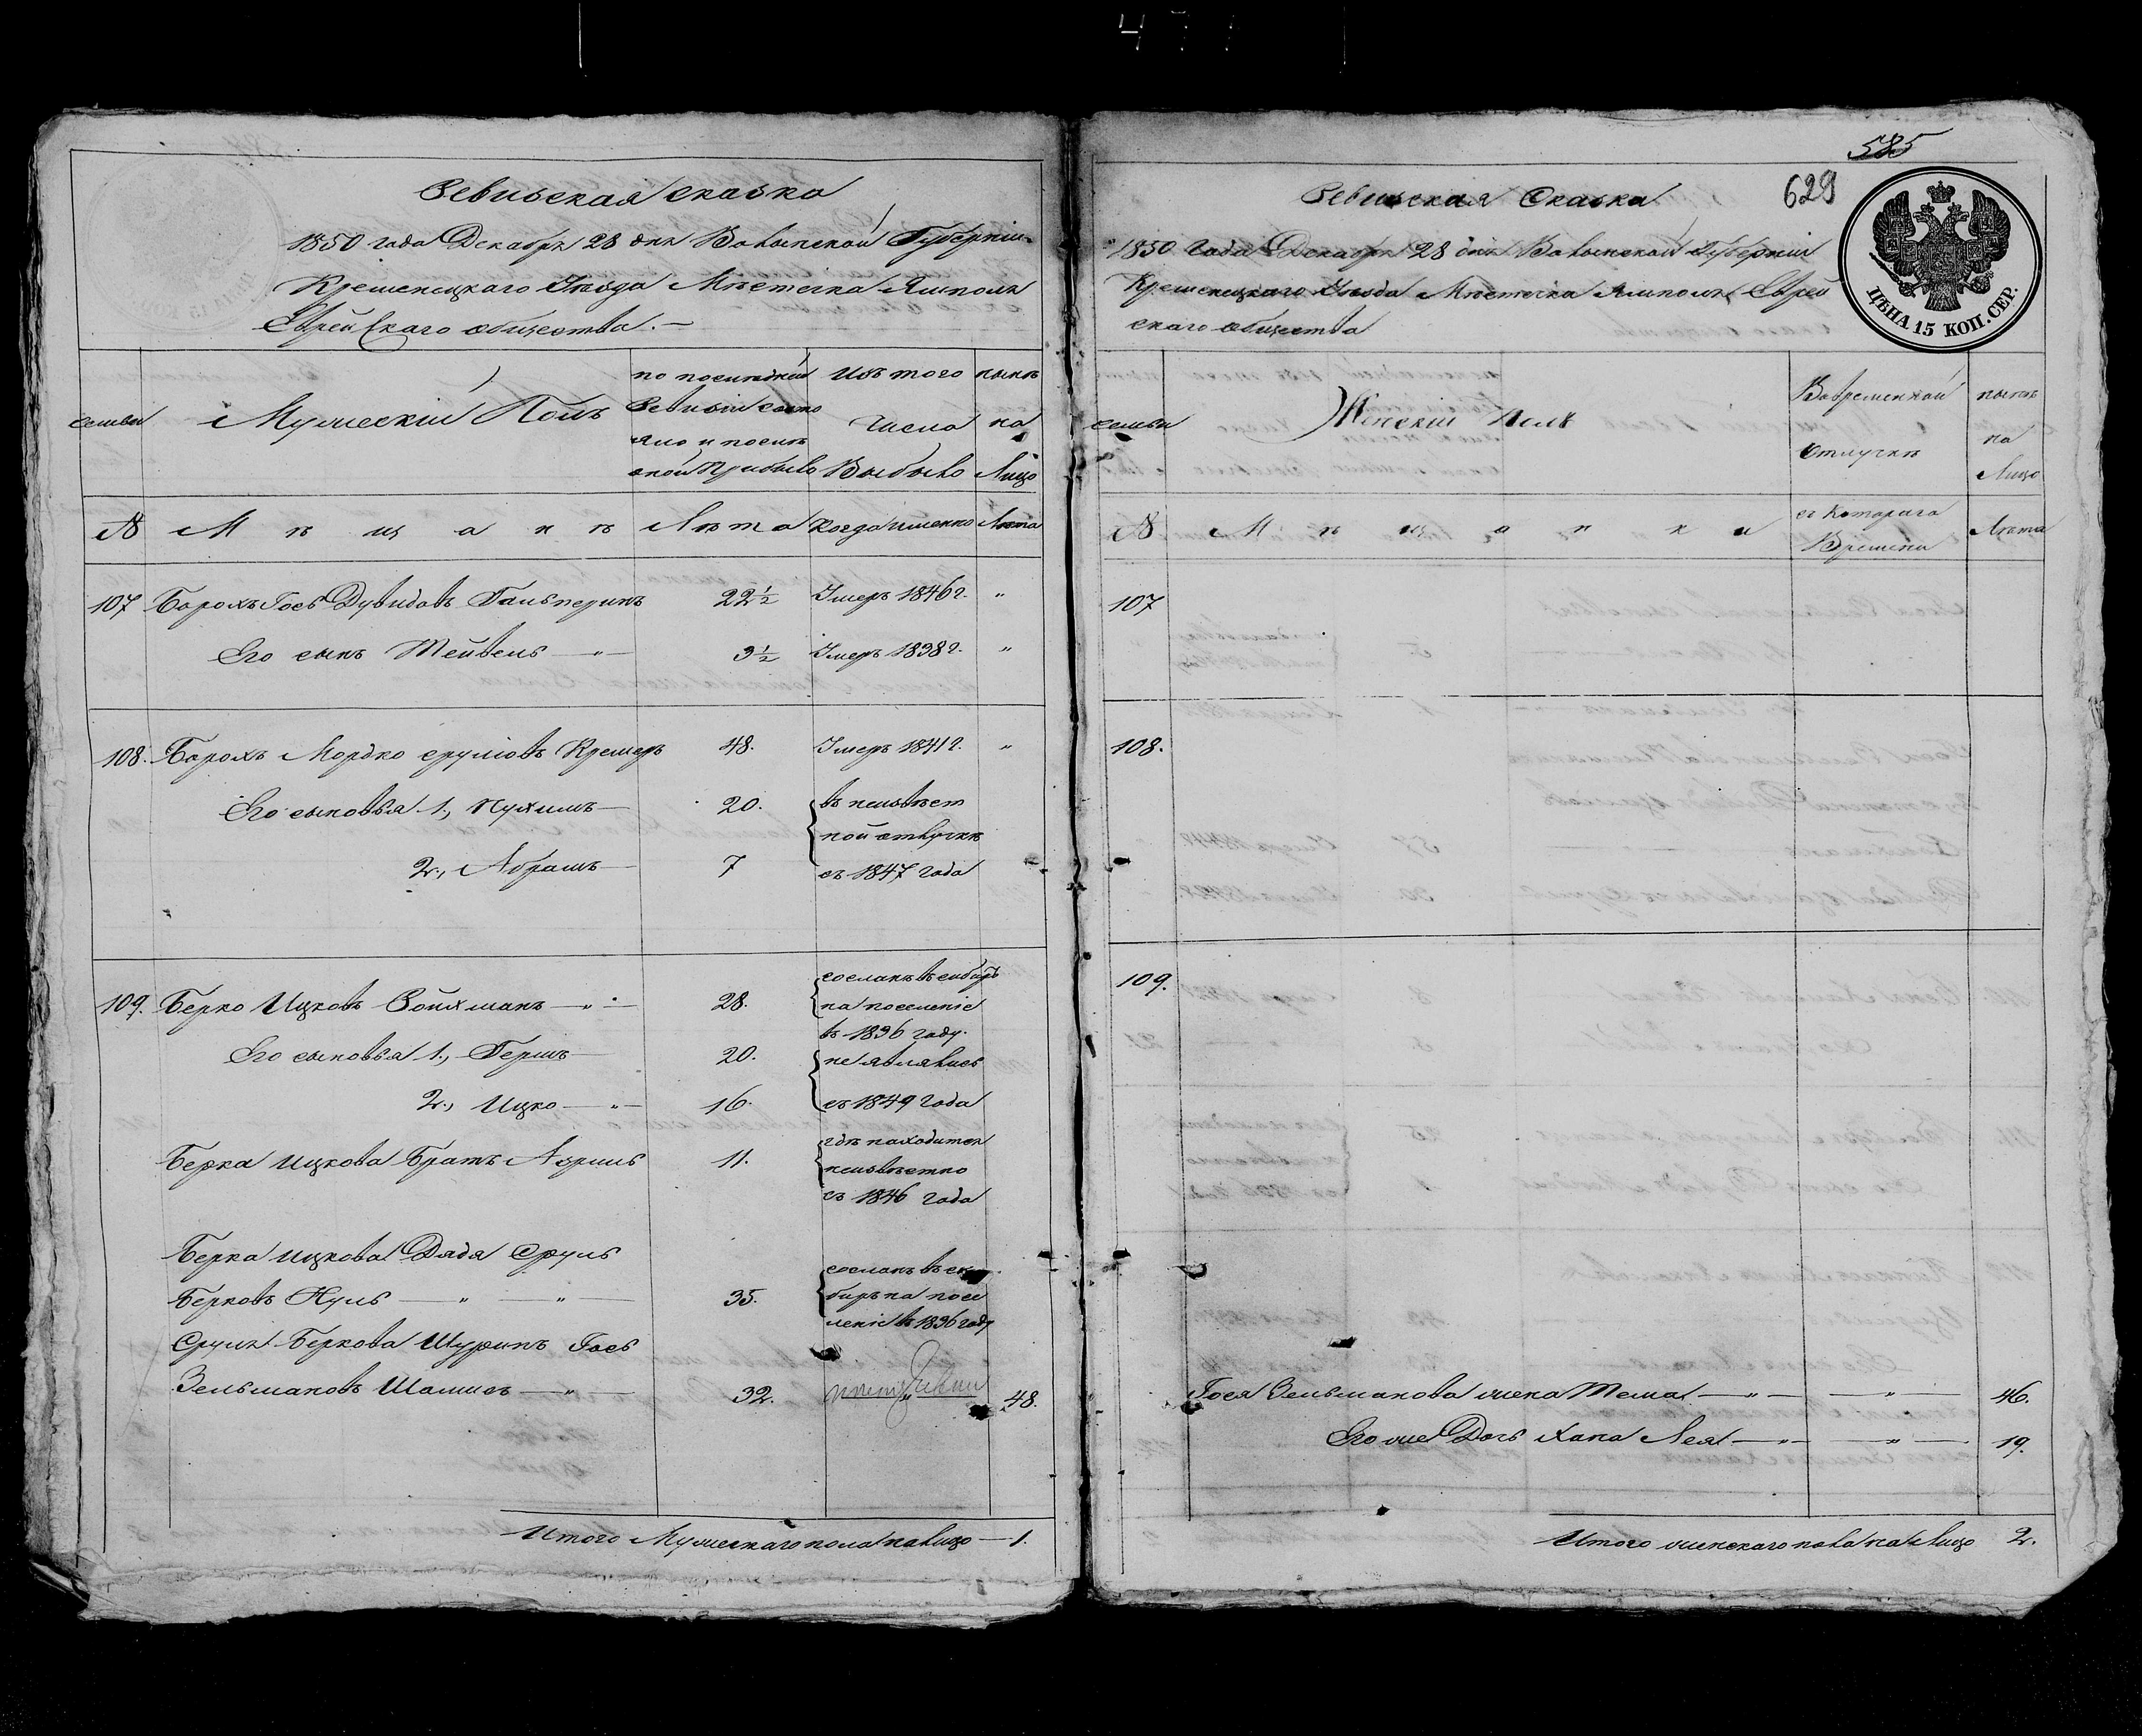 Ревизская сказка
1850 года Декабря 28 дня Волынской Губернiи
Кременецкаго Уѣзда Мѣстечка Ямполя
Еврейскаго общества.
семьи
Мужескiй Полъ
по последней
Ревизiи состо
яло и после
оной прибыло
Изъ того
Числа
Выбыло
нынѣ
на
Лицо
№
Мѣщанѣ
Лѣта
Когда именно
Лѣта
107 Борохъ Iось Дувидовъ Гальперинъ 22½ Умеръ 1846 г. "
Его сынъ Тейвель — " — 3½ Умеръ 1838 г. "
108. Борохъ Мордко Срулiовъ Кремеръ 48. Умеръ 1841 г. "
Его сыновья 1., Нухимъ — 20. въ неизвѣст
ной отлучкѣ
2., Абрамъ — 7 съ 1847 года
109. Берко Ицковъ Ройхманъ — " — 28. сосланъ въ сибирь
на поселенiе
въ 1836 году.
Его сыновья 1., Гершъ — 20. не явлались
2., Ицко — " — 16. съ 1849 года
Берка Ицкова Братъ Азриль 11. гдѣ находится
неизвѣстно
съ 1846 года
Берка Ицкова Дядя Сруль
Берковъ Нуль — " — " — 35. сосланъ въ си
бирь на посе
ленiе въ 1836 году
Сруля Беркова Шуринъ Iось
Зельмановъ Шамисъ — " — 32. " 48.
Итого Мужескаго пола на лицо — 1.
585
629
Ревизская Сказка
1850 Года Декабря 28 дня Волынской Губернiи
Кременецкаго Уѣзда Мѣстечка Ямполя Еврей
скаго общества
ЦѢНА 15 КОП. СЕР.
семьи
Женскiй Полъ
Вовременной
отлучкѣ
нынѣ
на
Лицо
№
Мѣщанки
съ Котораго
Времени
Лѣта
107
108.
109.
Iося Зельманова жена Тема — " — — " — 46.
Его же Дочь Хана Лея — " — — " — 19.
Итого женскаго пола на Лицо 2.